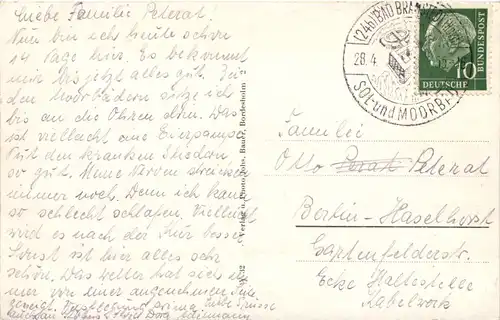 Liebe Familie Peterat.
Nun bin ich heute schon
14 Tage hier. Es bekommt
mir bis jetzt alles gut. Zu
den Moorbädern sitze ich
bis an die Ohren drin. Das
ist vielleicht eine
Tut den kranken
so gut. Meine Nerven streiken
immer noch. Denn ich kann
so schlecht schlafen. Vielleicht
wird es nach der Kur besser.
Sonst ist hier alles sehr
schön. Das Wetter hat sich
mer von einer angenehmen Seite
gezeigt. Verpflegung prima. Gute Grüsse
Dora
Verlag u. Photo Rolf Bauer, Bordesholm
(24b) BAD BRAMSTEDT
28.4.
SOL- und MOORBAD
DEUTSCHE BUNDESPOST
10
Familie
Otto Perat Peterat
Berlin-Haselhorst
Gartenfelderstr.
Ecke Haltestelle
Kabelwerk